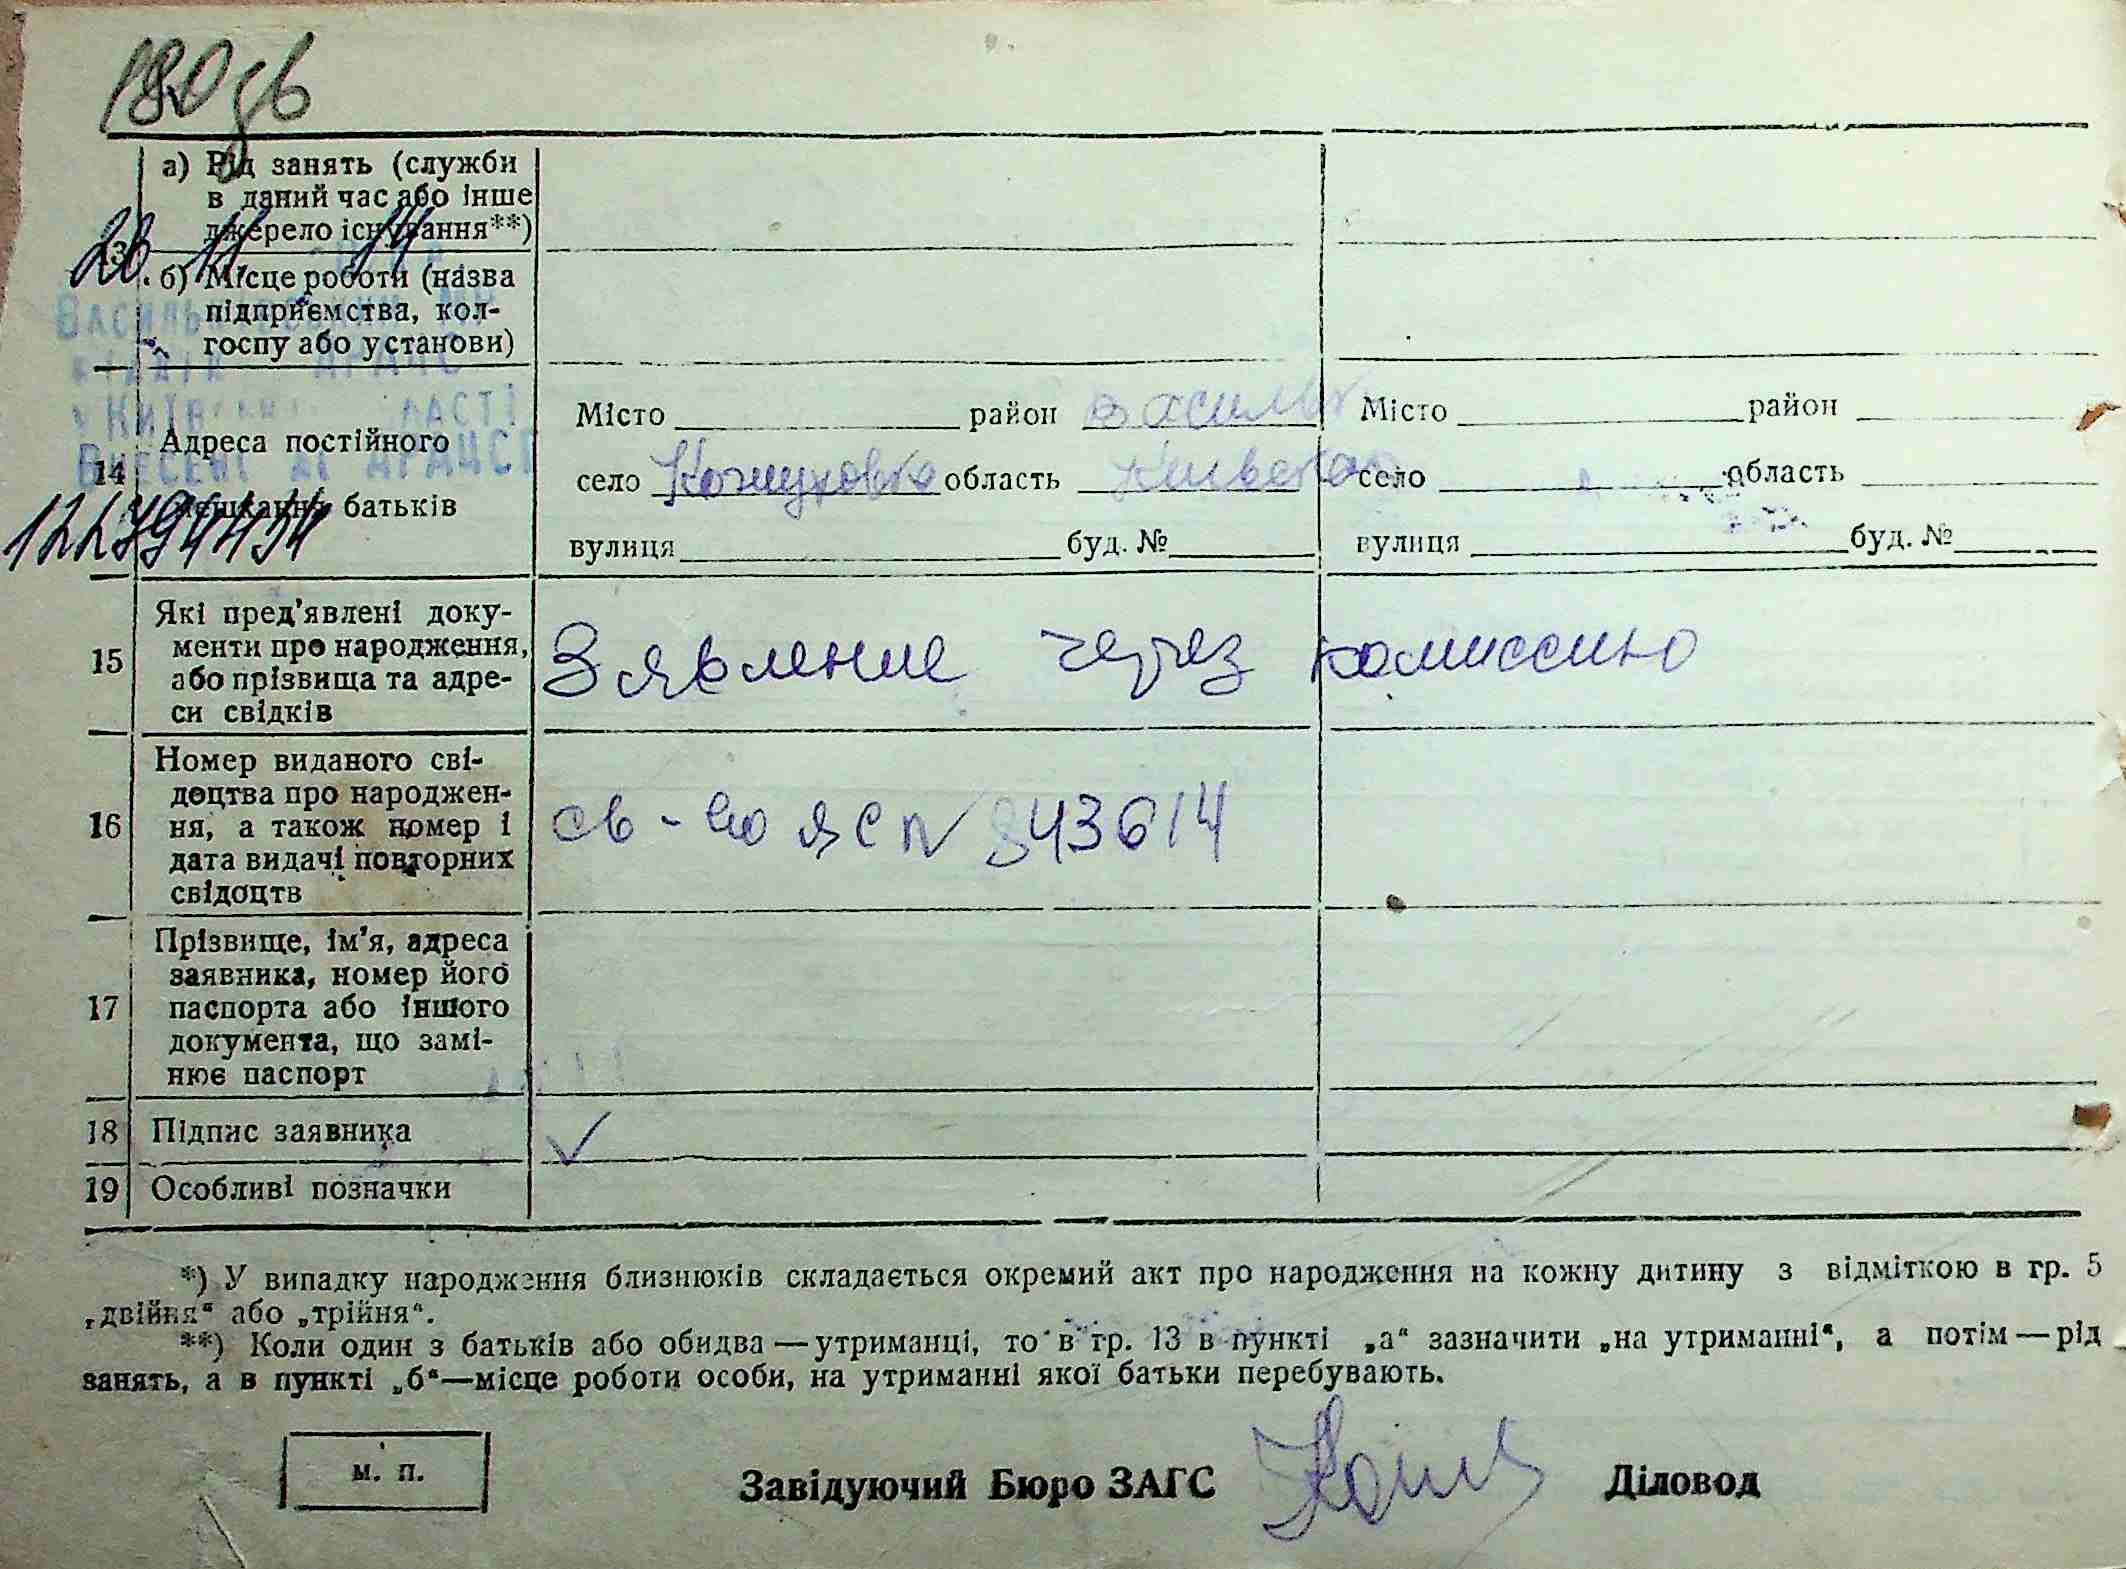 180
а) Рід занять (служби
в даний час або інше
джерело існування**)
13
23 11 14
б) Місце роботи (назва
підприємства, кол-
госпу або установи)
у Київ ЛАСТІ
ДРАЦСГ
Місто район Васильк
Місто район
14
Адреса постійного
мешкання батьків
село область Киевская
село область
вулиця буд. №
вулиця буд. №
15
Які пред'явлені доку-
менти про народження,
або прізвища та адре-
си свідків
Зявление через комиссию
16
Номер виданого сві-
доцтва про народжен-
ня, а також номер і
дата видачі повторних
свідоцтв
св-во ЯС N 843614
17
Прізвище, ім'я, адреса
заявника, номер його
паспорта або іншого
документа, що замі-
нює паспорт
18
Підпис заявника
✓
19
Особливі позначки
*) У випадку народження близнюків складається окремий акт про народження на кожну дитину з відміткою в гр. 5
„двійня“ або „трійня“.
**) Коли один з батьків або обидва — утриманці, то в гр. 13 в пункті „а“ зазначити „на утриманні“, а потім — рід
занять, а в пункті „б“—місце роботи особи, на утриманні якої батьки перебувають.
м. п.
Завідуючий Бюро ЗАГС
Діловод